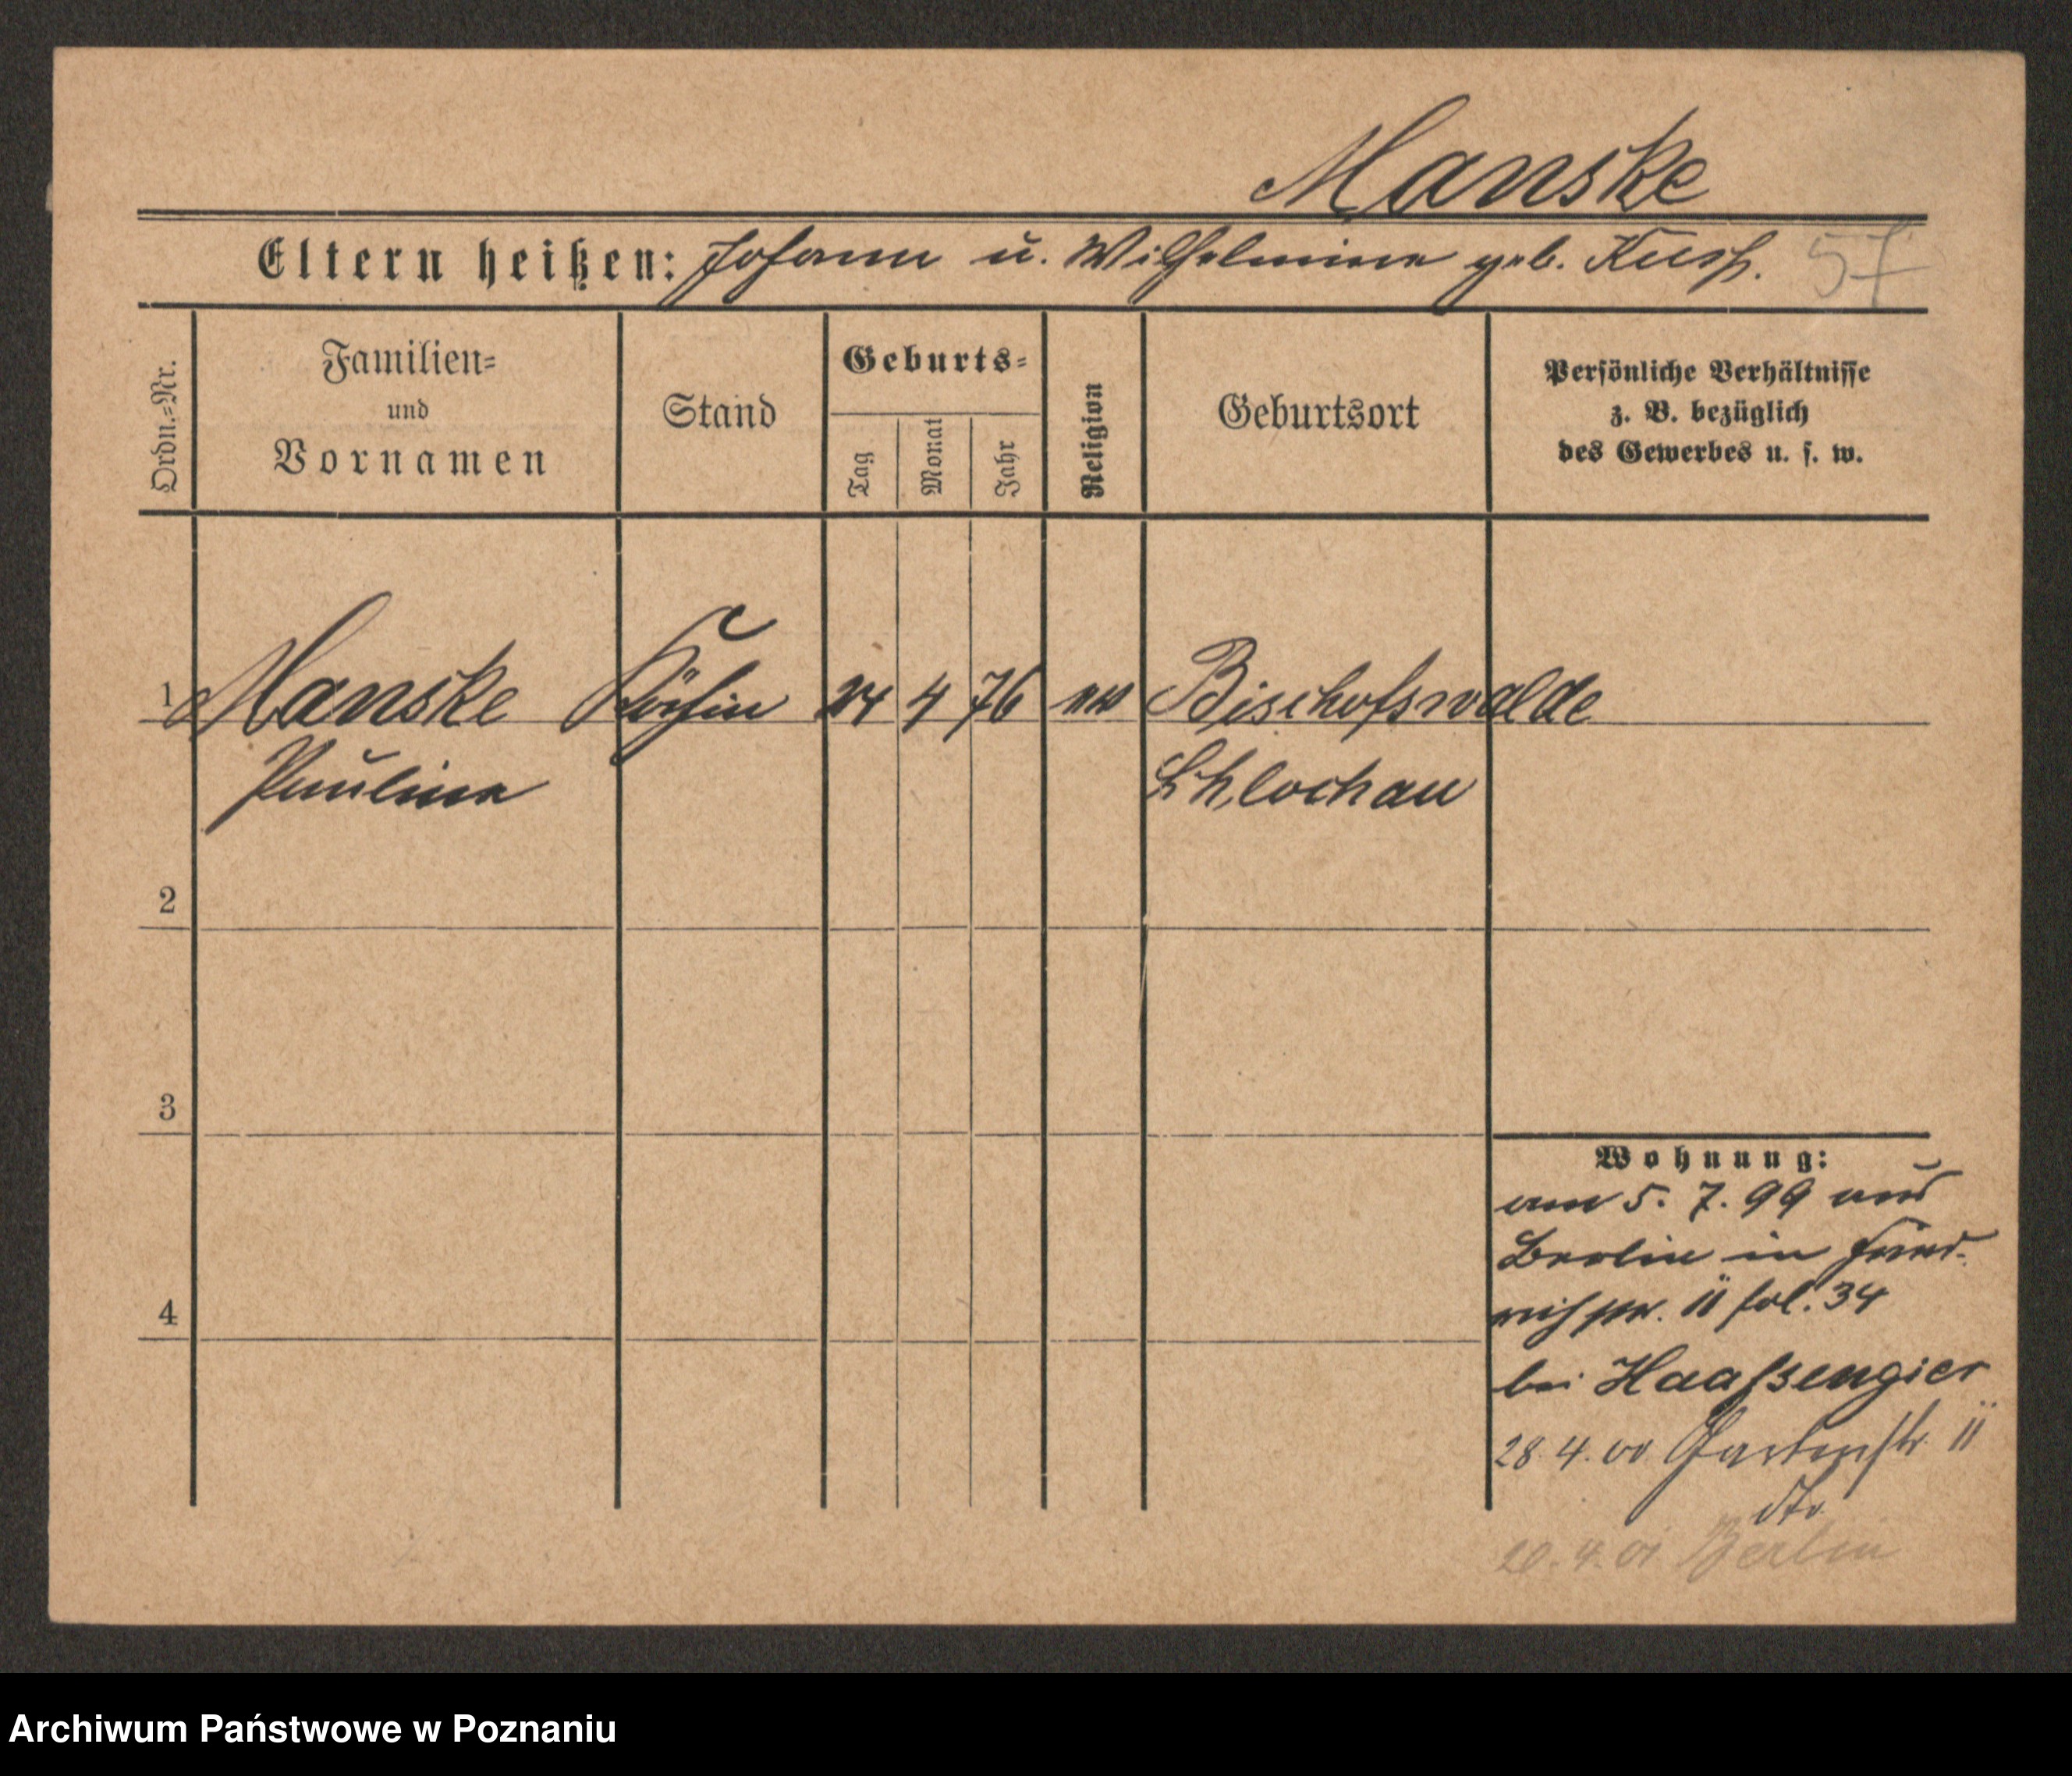 Manske
Eltern heißen: Johann u. Wilhelmine geb. Kuss. 57
Ordn.-Nr.
Familien-
und
Vornamen
Stand
Geburts-
Tag
Monat
Jahr
Religion
Geburtsort
Persönliche Verhältnisse
z. B. bezüglich
des Gewerbes u. s. w.
1 Manske Köchin 24 4 76 ev Bischofswalde
Pauline Schlochau
2
3
4
Wohnung:
am 5. 7. 99 aus
Berlin in Fried-
richstr. 11 fol. 34
bei Haaßengier
28. 4. 00 Gartenstr. 11
dto.
20. 4. 01 Berlin
Archiwum Państwowe w Poznaniu